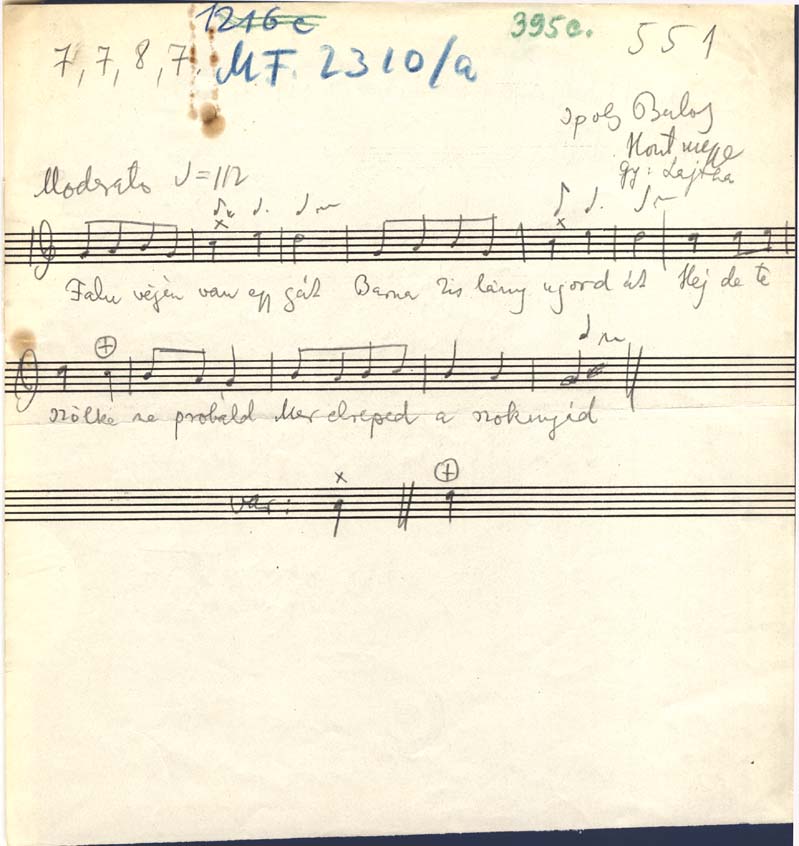 1216c
395c.
551
7, 7, 8, 7.
MF. 2310/a
Ipoly Balog
Hont megye
gy: Lajtha
Moderato ♩=112
Falu végén van egy gát Barna kis lány ugord át Hej de te
szőke ne probáld Mer elreped a szoknyád
var: